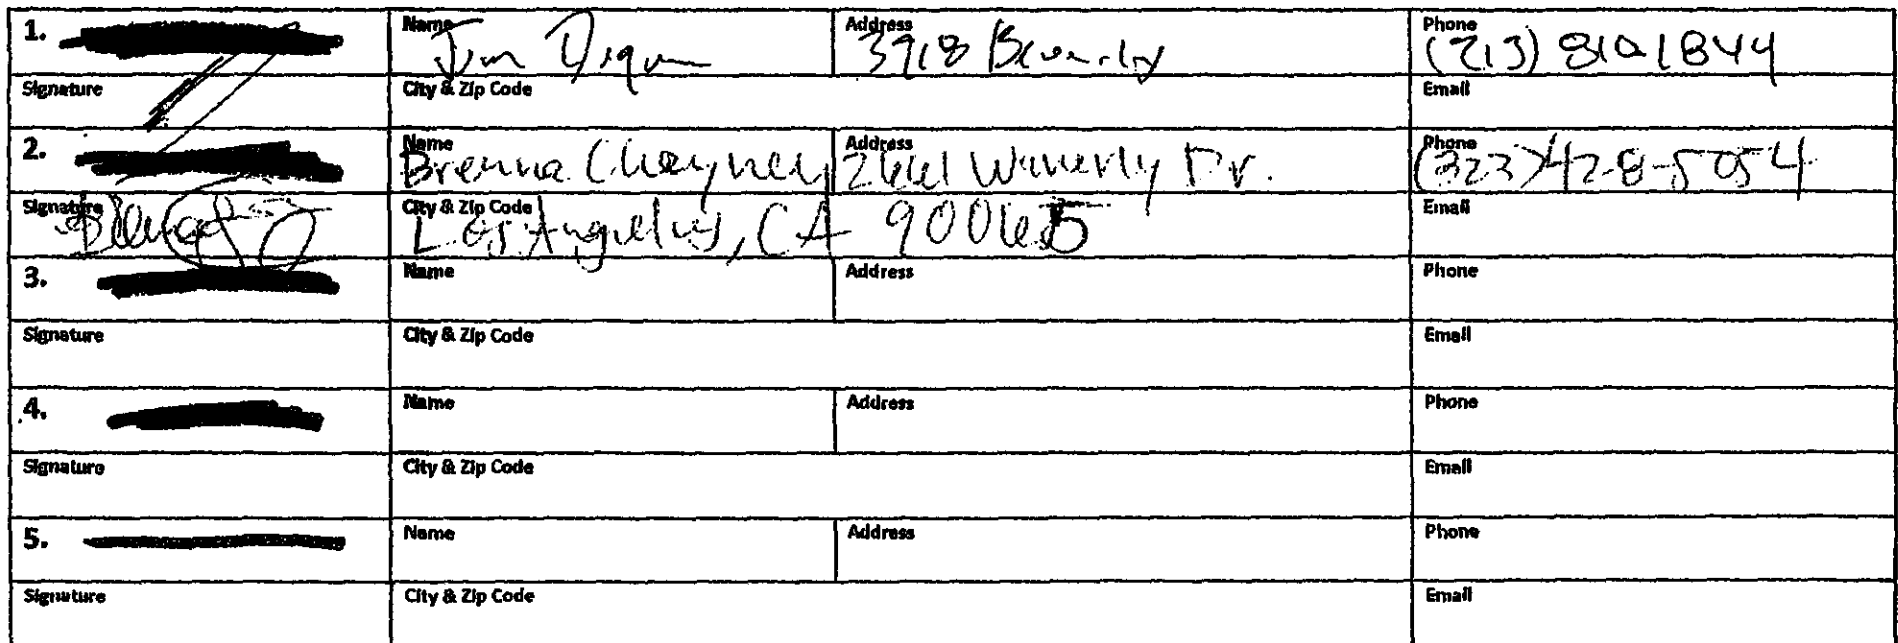 1. Name Address Phone
Jim 3918 Beverly (213) 8101844
Signature City & Zip Code Email
2. Name Address Phone
Brenna Chayney 2661 Waverly Dr. (323) 428-5054
Signature City & Zip Code Email
Los Angeles, CA 90065
3. Name Address Phone
Signature City & Zip Code Email
4. Name Address Phone
Signature City & Zip Code Email
5. Name Address Phone
Signature City & Zip Code Email